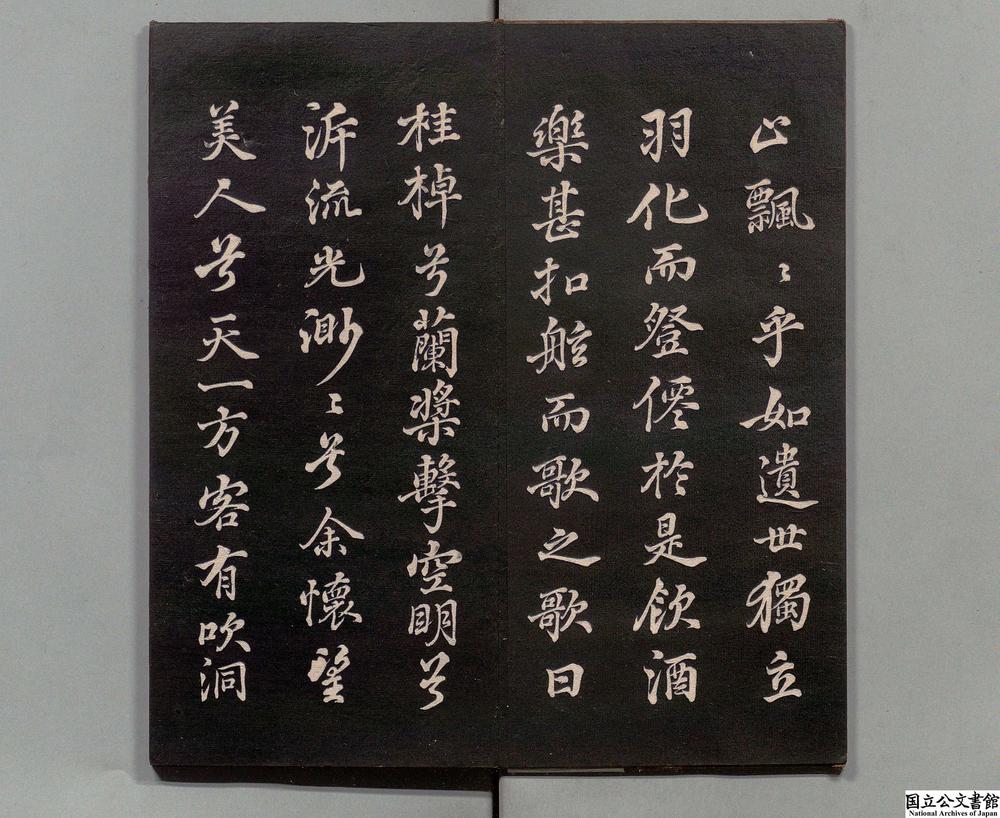 止飄〻乎如遺世獨立
羽化而登僊於是飲酒
樂甚扣舷而歌之歌曰
桂棹兮蘭槳擊空明兮
泝流光渺〻兮余懷望
美人兮天一方客有吹洞
国立公文書館
National Archives of Japan